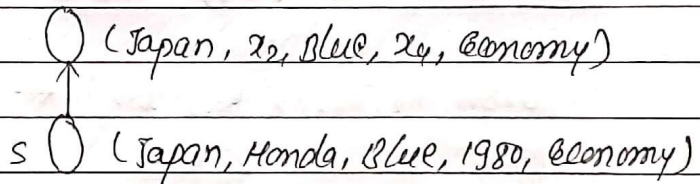 (Japan, x2, Blue, x4, Economy)
S (Japan, Honda, Blue, 1980, Economy)